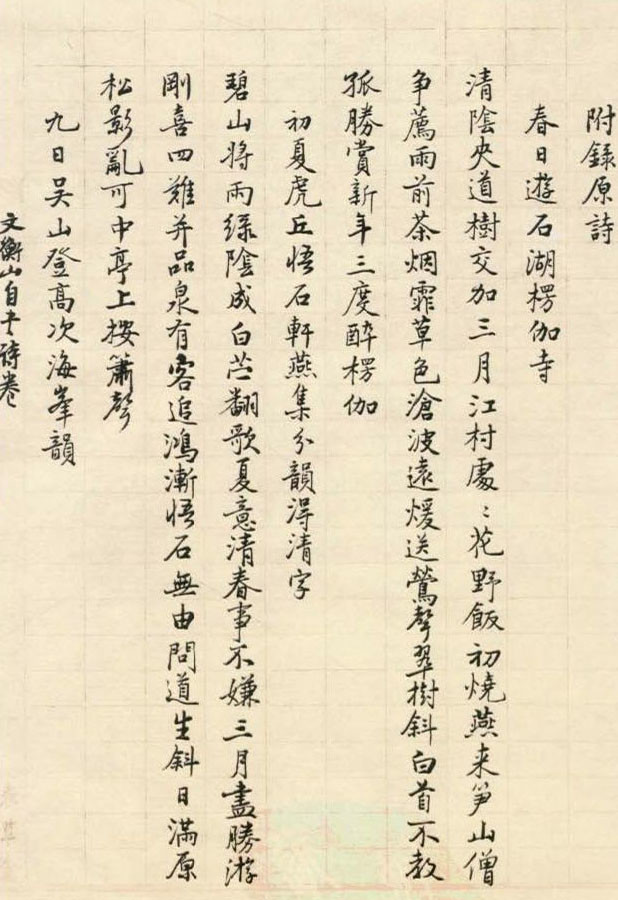 附錄原詩
春日遊石湖楞伽寺
清陰夾道樹交加三月江村處〻花野飯初燒燕来笋山僧
争薦雨前茶烟霏草色滄波遠煖送鶯聲翠樹斜白首不教
孤勝賞新年三度醉楞伽
初夏虎丘悟石軒燕集分韻得清字
碧山將雨綠陰成白苎翻歌夏意清春事不嫌三月盡勝游
剛喜四難并品泉有客追鴻漸悟石無由問道生斜日滿原
松影亂可中亭上按簫聲
九日吴山登高次海峯韻
文衡山自书詩卷